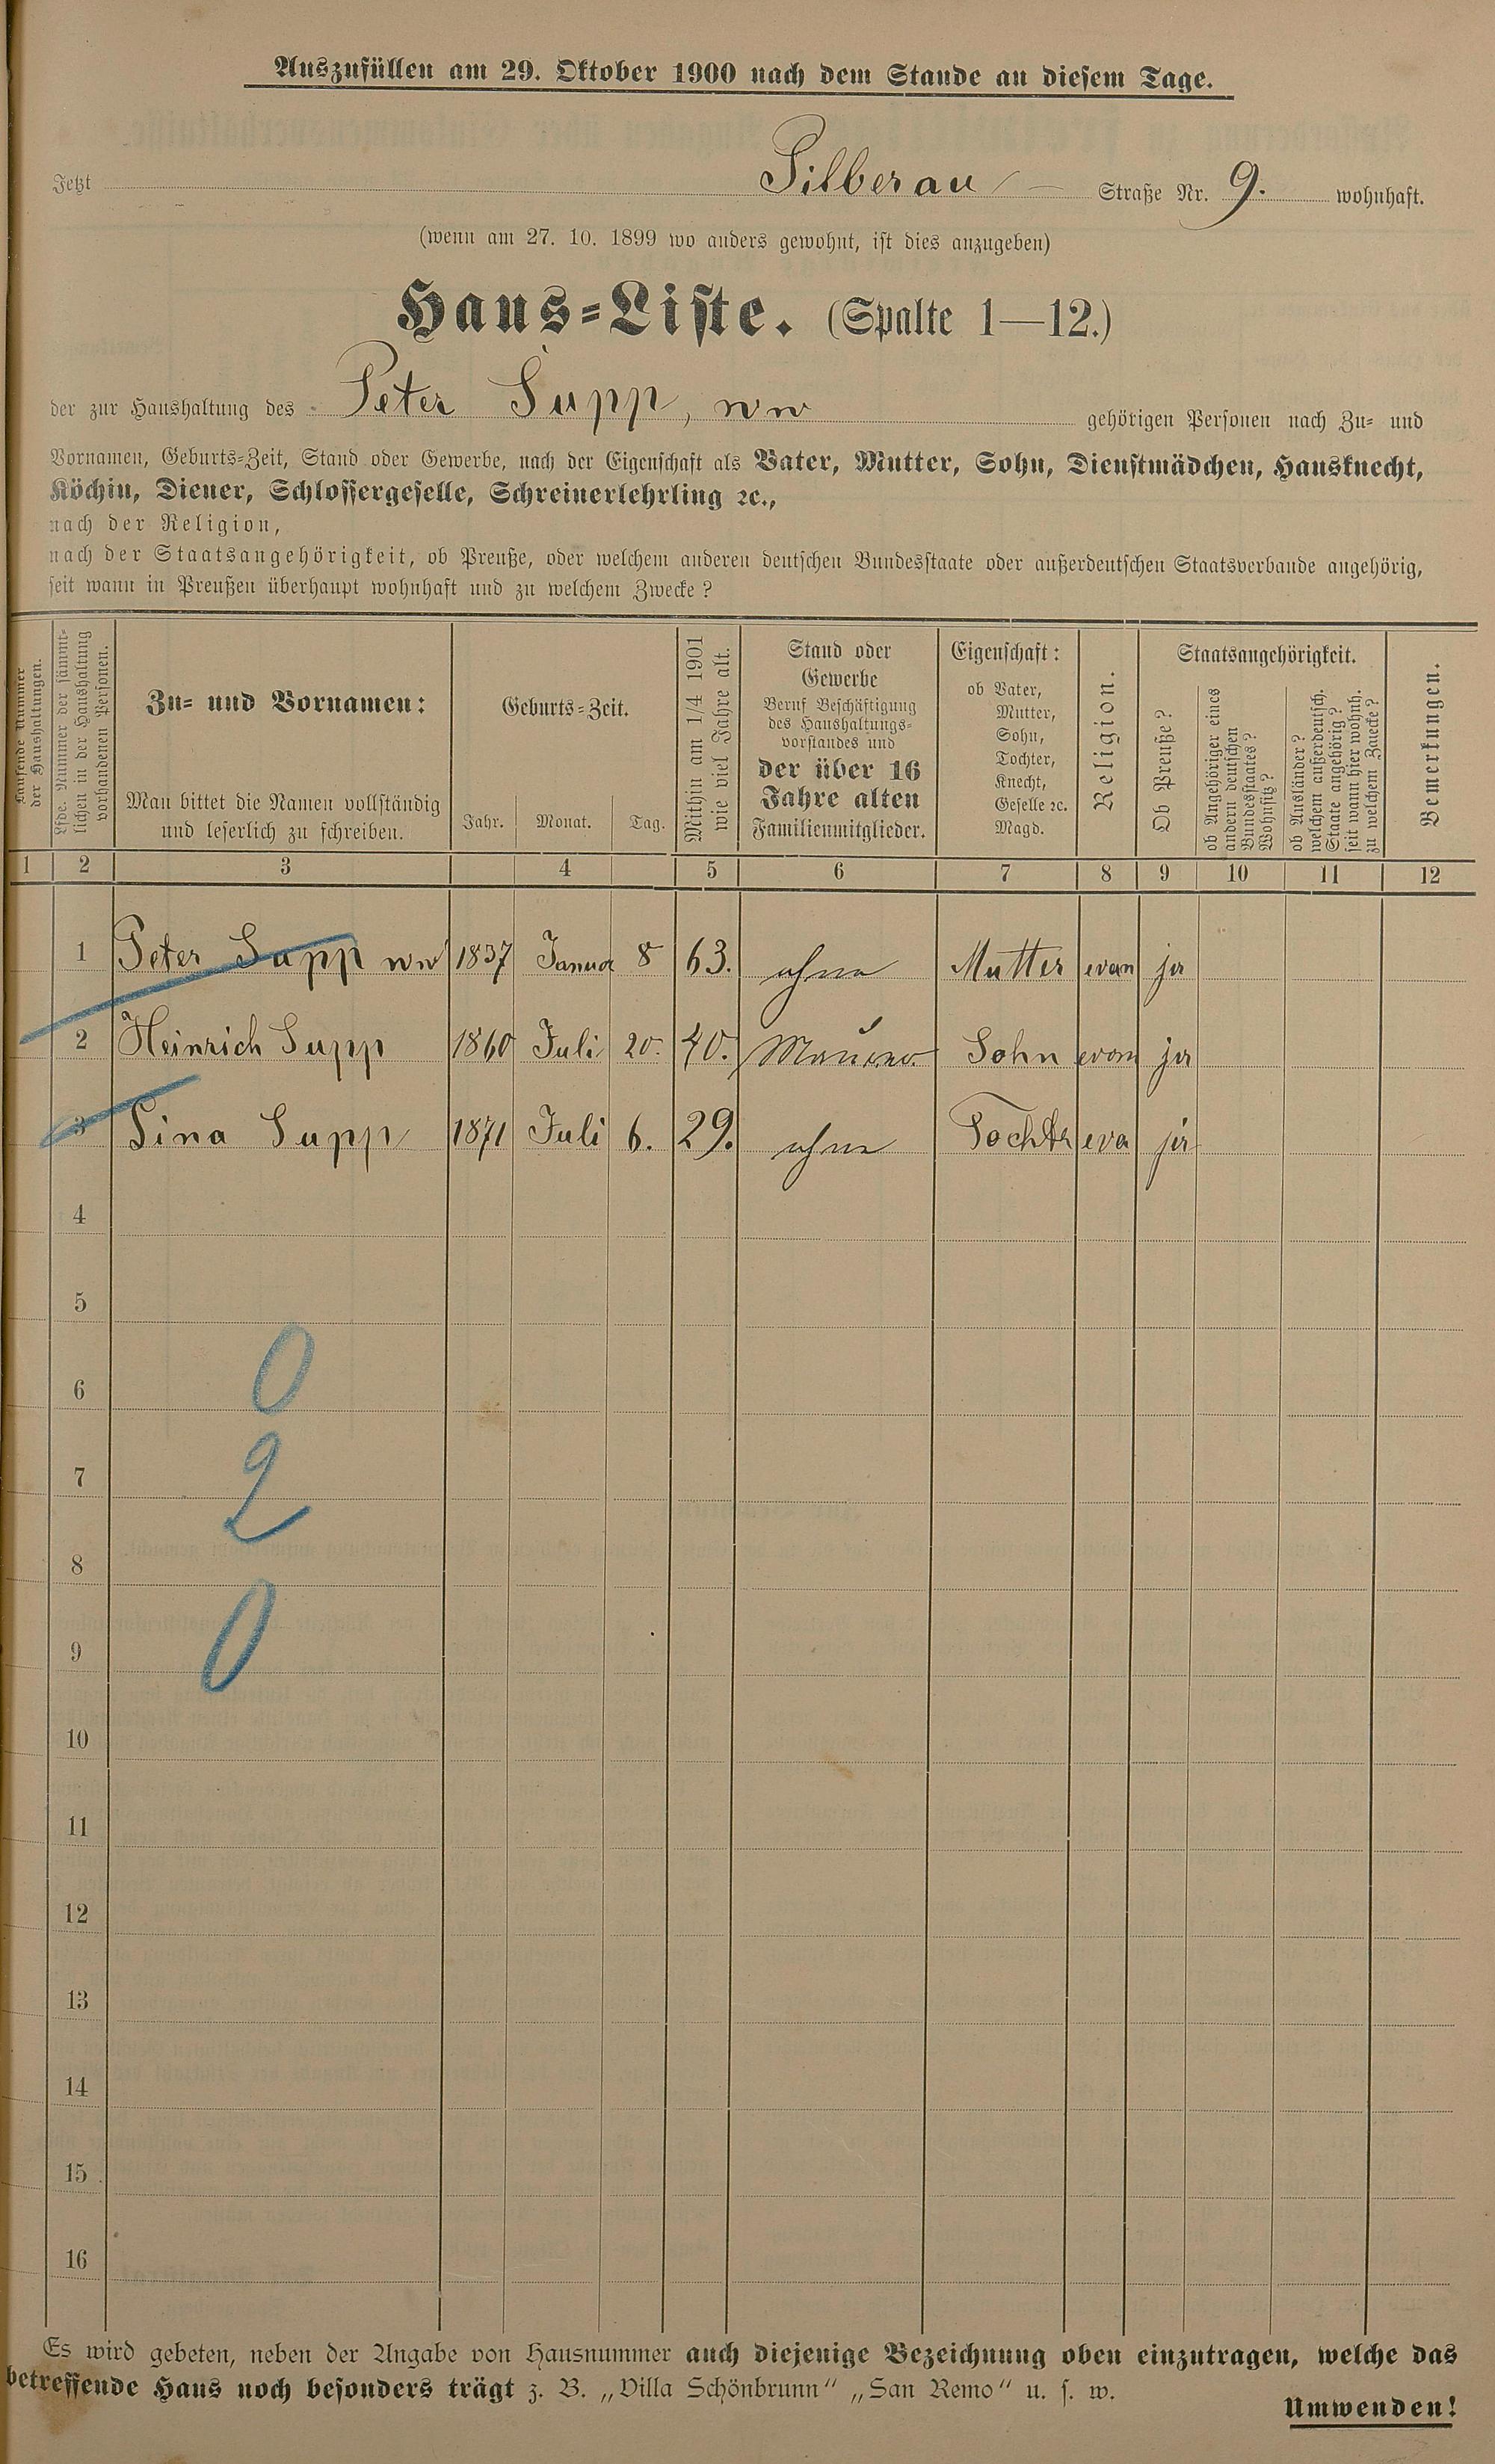 Auszufüllen am 29. Oktober 1900 nach dem Stande an diesem Tage.
Jetzt Silberau Straße Nr. 9. wohnhaft.
(wenn am 27. 10. 1899 wo anders gewohnt, ist dies anzugeben)
Haus-Liste. (Spalte 1—12.)
der zur Haushaltung des Peter Supp, ww gehörigen Personen nach Zu- und
Vornamen, Geburts-Zeit, Stand oder Gewerbe, nach der Eigenschaft als Vater, Mutter, Sohn, Dienstmädchen, Hausknecht,
Köchin, Diener, Schlossergeselle, Schreinerlehrling ꝛc.,
nach der Religion,
nach der Staatsangehörigkeit, ob Preuße, oder welchem anderen deutschen Bundesstaate oder außerdeutschen Staatsverbande angehörig,
seit wann in Preußen überhaupt wohnhaft und zu welchem Zwecke?
Laufende Nummer
der Haushaltungen.
Lfde. Nummer der sämmt-
lichen in der Haushaltung
vorhandenen Personen.
Zu- und Vornamen:
Man bittet die Namen vollständig
und leserlich zu schreiben.
Geburts-Zeit.
Jahr. Monat. Tag.
Mithin am 1/4 1901
wie viel Jahre alt.
Stand oder
Gewerbe
Beruf Beschäftigung
des Haushaltungs-
vorstandes und
der über 16
Jahre alten
Familienmitglieder.
Eigenschaft:
ob Vater,
Mutter,
Sohn,
Tochter,
Knecht,
Geselle ꝛc.
Magd.
Religion.
Staatsangehörigkeit.
Ob Preuße?
ob Angehöriger eines
andern deutschen
Bundesstaates?
Wohnsitz?
ob Ausländer?
welchem außerdeutsch.
Staate angehörig?
seit wann hier wohnh.
zu welchem Zwecke?
Bemerkungen.
1 2 3 4 5 6 7 8 9 10 11 12
1 Peter Supp ww 1837 Januar 8 63. ohne Mutter evan ja
2 Heinrich Supp 1860 Juli 20. 40. Maurer Sohn evan ja
3 Lina Supp 1871 Juli 6. 29. ohne Tochtr eva ja
4
5
6
0
7
2
8
9
0
10
11
12
13
14
15
16
Es wird gebeten, neben der Angabe von Hausnummer auch diejenige Bezeichnung oben einzutragen, welche das
betreffende Haus noch besonders trägt z. B. „Villa Schönbrunn“ „San Remo“ u. s. w.
Umwenden!